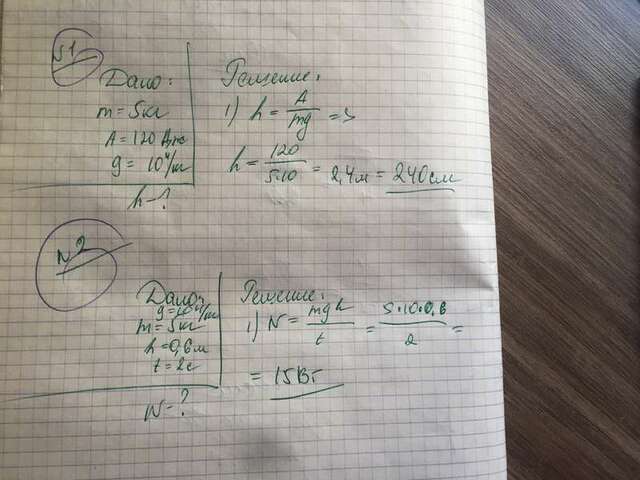 №1
Дано:
m = 5 кг
A = 120 Дж
g = 10 Н/кг
h - ?
Решение:
1) h = A/mg = >
h = 120/5·10 = 2,4 м = 240 см
№2
Дано:
g = 10 Н/кг
m = 5 кг
h = 0,6 м
t = 2 с
N = ?
Решение:
1) N = mgh/t = 5·10·0,6/2 =
= 15 Вт